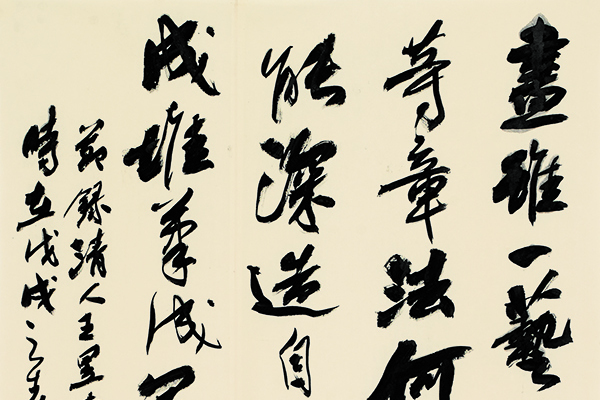 畫雖一藝
等章法何
能深造自
成堆筆成
節錄清人王昱
時在戊戌之春